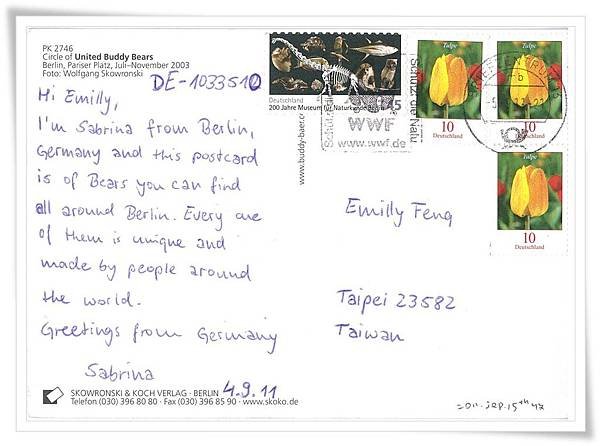 PK 2746
Circle of United Buddy Bears
Berlin, Pariser Platz, Juli–November 2003
Foto: Wolfgang Skowronski
DE-1033510
Hi Emilly,
I'm Sabrina from Berlin,
Germany and this postcard
is of Bears you can find
all around Berlin. Every one
of them is unique and
made by people around
the world.
Greetings from Germany
Sabrina
4.9.11
SKOWRONSKI & KOCH VERLAG · BERLIN
Telefon (030) 396 80 80 · Fax (030) 396 85 90 · www.skoko.de
www.buddy-baer.co
Deutschland
200 Jahre Museum für Naturkunde Berlin
45
Schützt die Natu
WWF
www.wwf.de
Tulpe
10
Deutschland
Tulpe
10
Tulpe
10
Deutschland
b
Emilly Feng
Taipei 23582
Taiwan